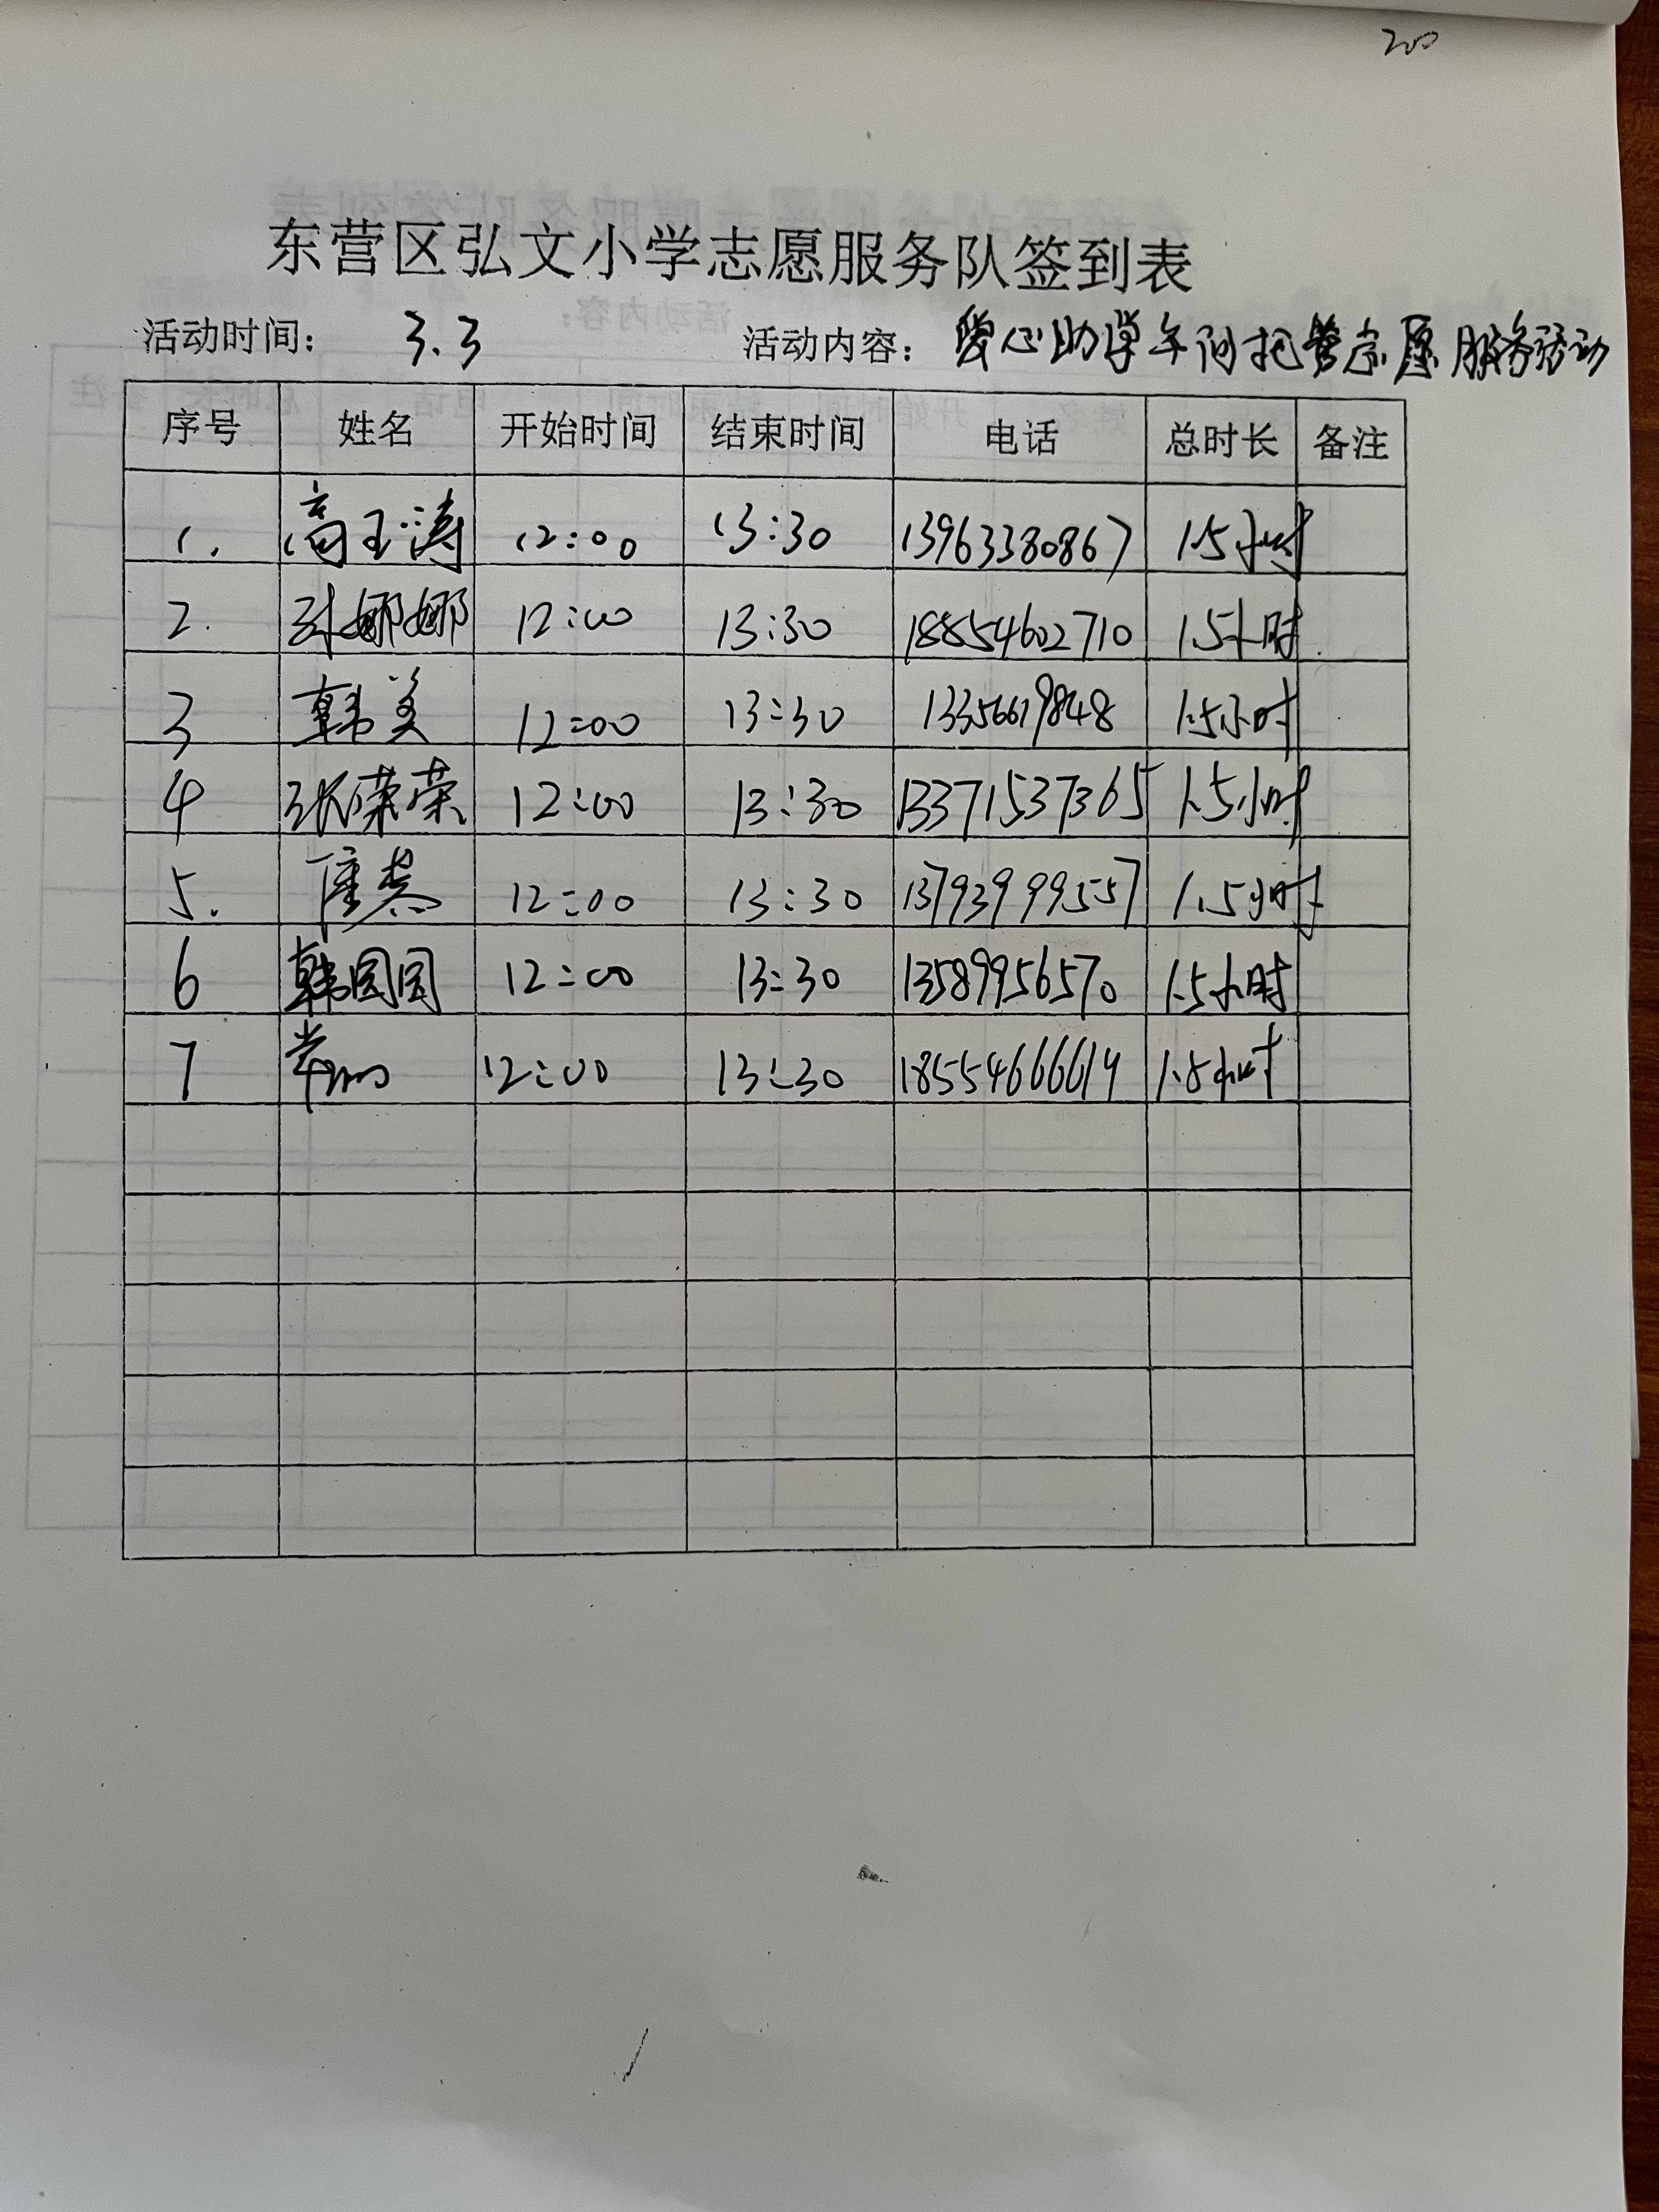 200
东营区弘文小学志愿服务队签到表
活动时间: 3.3 活动内容: 爱心助学午间托管志愿服务活动
序号 姓名 开始时间 结束时间 电话 总时长 备注
1. 高玉涛 12:00 13:30 13963380867 1.5小时
2. 娜娜 12:00 13:30 18854602710 1.5小时
3 韩美 12:00 13:30 13356619848 1.5小时
4 张荣荣 12:00 13:30 13371537365 1.5小时
5. 12:00 13:30 13793999557 1.5小时
6 韩园园 12:00 13:30 13589956570 1.5小时
7 12:00 13:30 18554666619 1.5小时